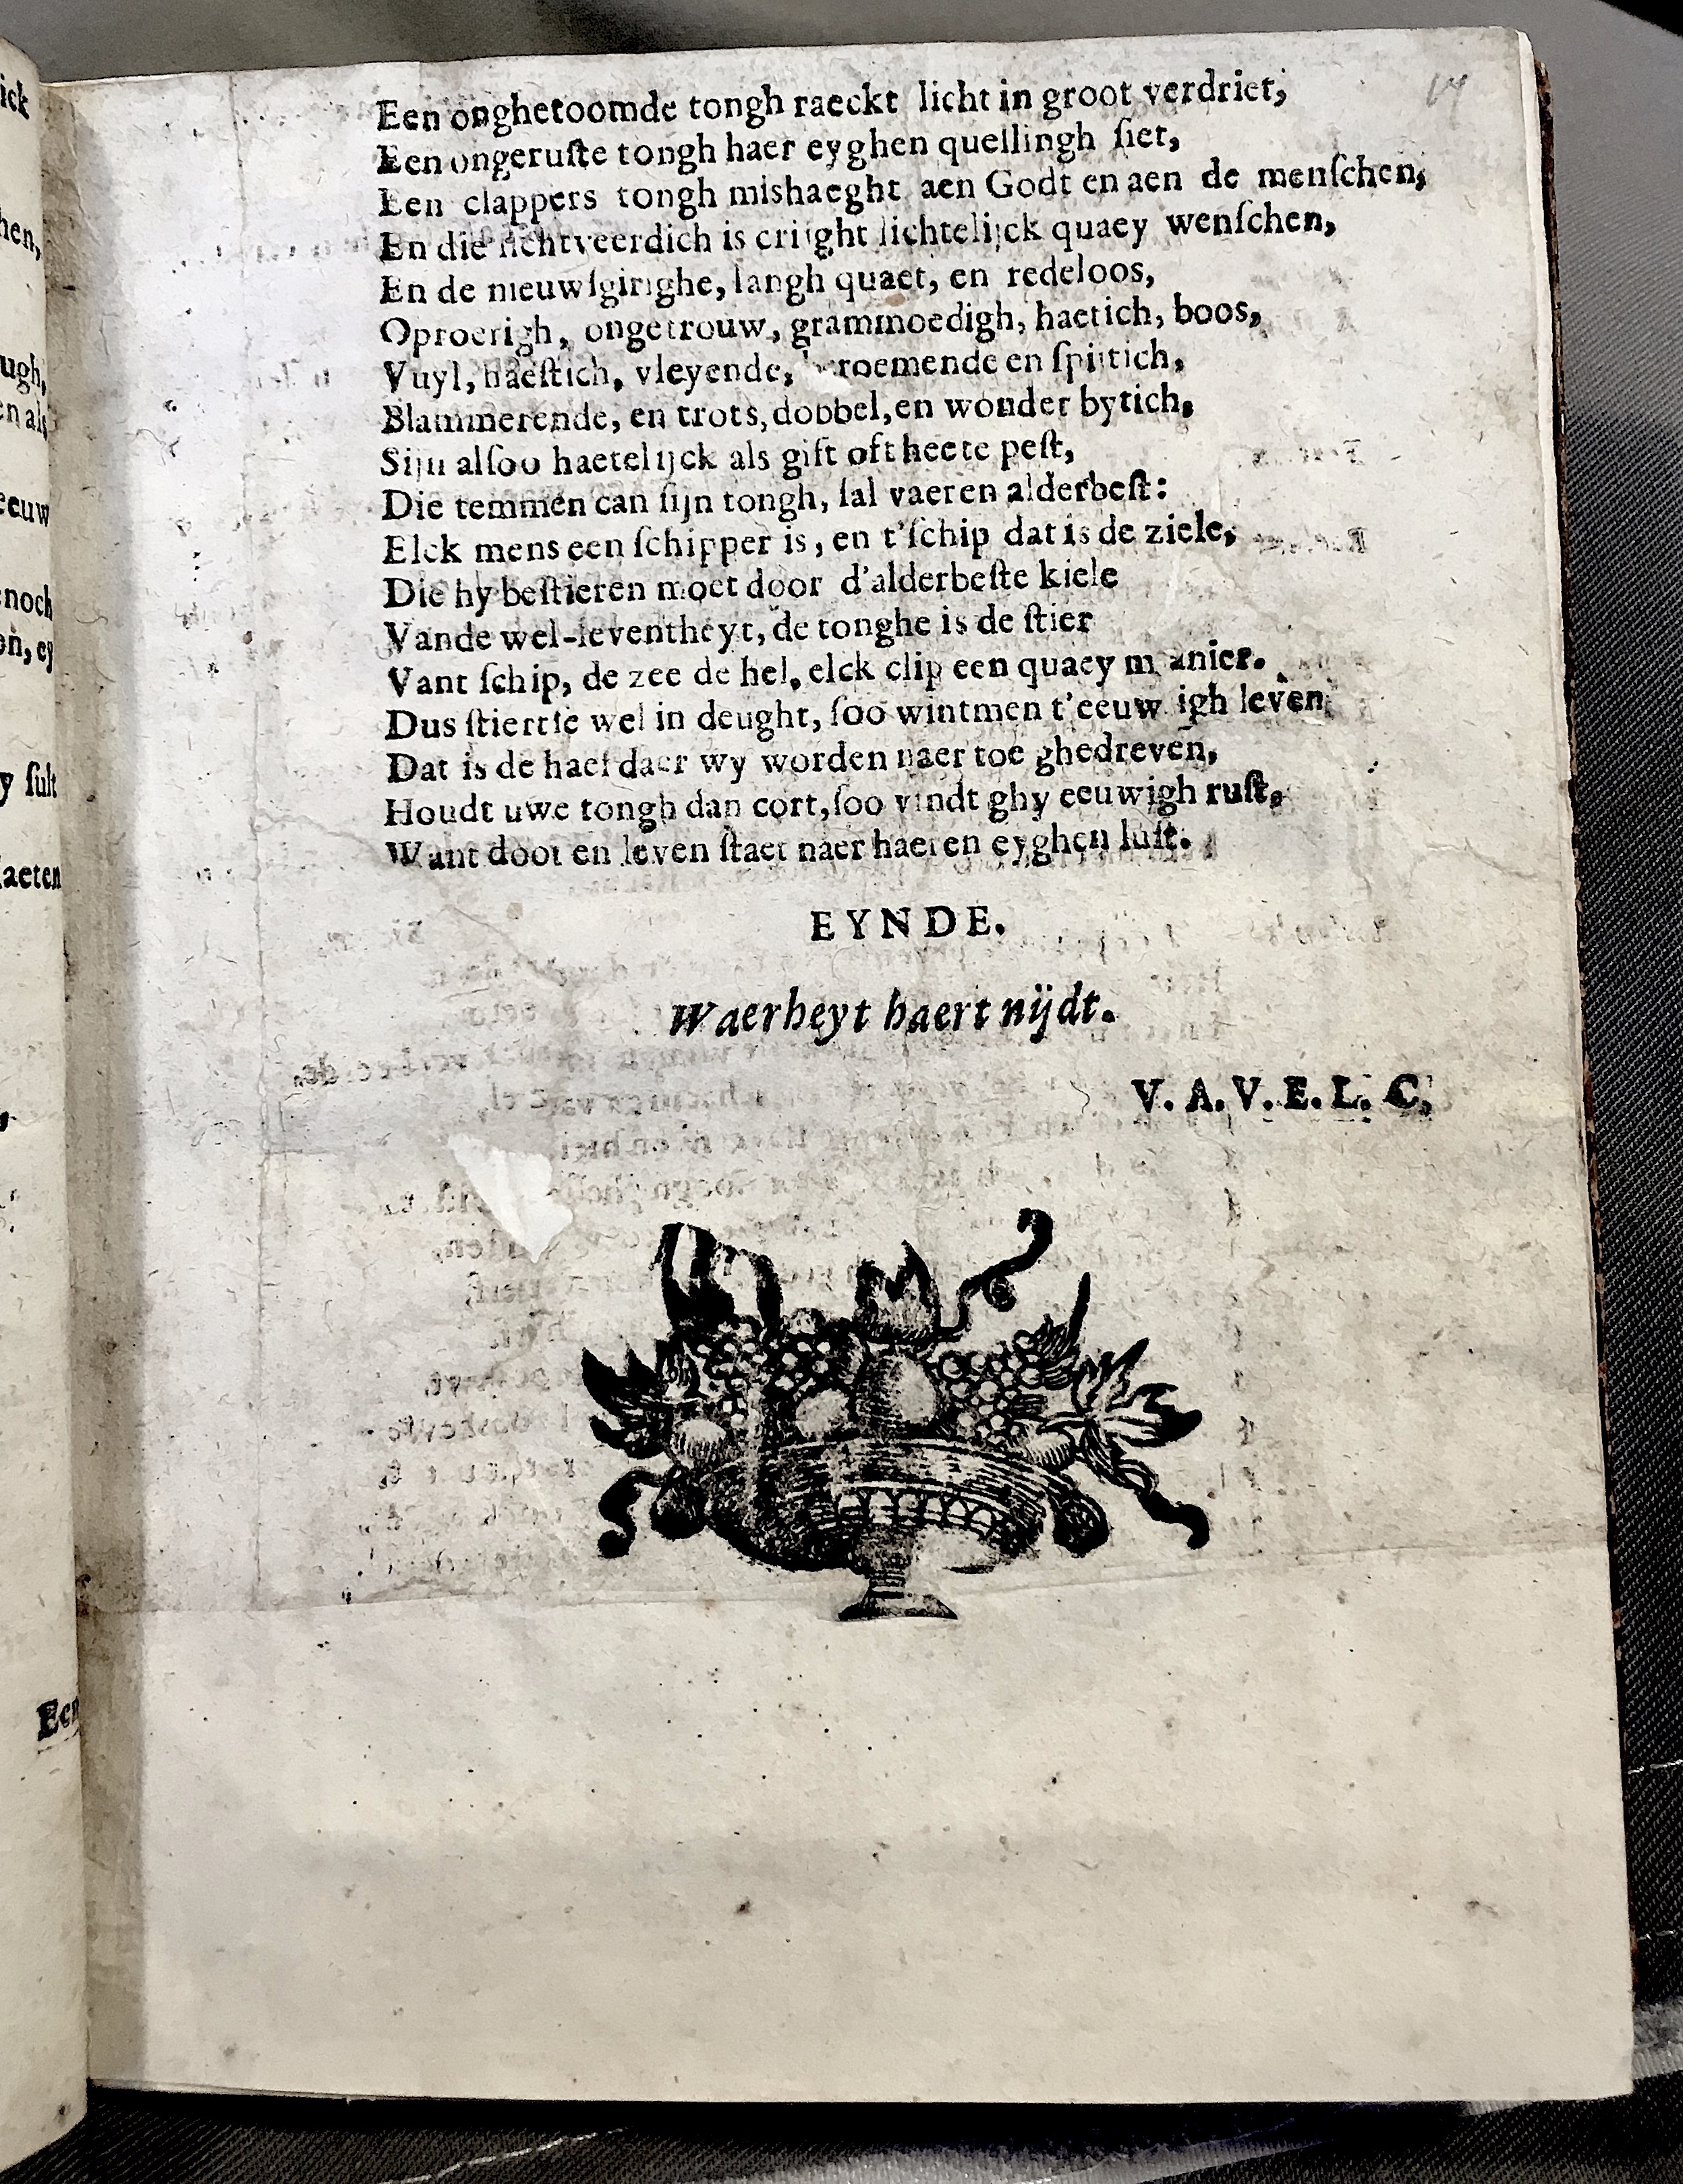 14
Een onghetoomde tongh raeckt licht in groot verdriet,
Een ongeruſte tongh haer eyghen quellingh ſiet,
Een clappers tongh mishaeght aen Godt en aen de menſchen,
En die lichtveerdich is crijght lichtelijck quaey wenſchen,
En de nieuwſgirighe, langh quaet, en redeloos,
Oproerigh, ongetrouw, grammoedigh, haetich, boos,
Vuyl, haeſtich, vleyende, beroemende en ſpijtich,
Blammerende, en trots, dobbel, en wonder bytich,
Sijn alſoo haetelijck als gift oft heete peſt,
Die temmen can ſijn tongh, ſal vaeren alderbeſt:
Elck mens een ſchipper is, en t'ſchip dat is de ziele,
Die hy beſtieren moet door d'alderbeſte kiele
Vande wel-leventheyt, de tonghe is de ſtier
Vant ſchip, de zee de hel, elck clip een quaey manier.
Dus ſtiertſe wel in deught, ſoo wintmen t'eeuwigh leven
Dat is de haef daer wy worden naer toe ghedreven,
Houdt uwe tongh dan cort, ſoo vindt ghy eeuwigh ruſt,
Want doot en leven ſtaet naer haeren eyghen luſt.
EYNDE.
Waerheyt baert nijdt.
V. A. V. E. L. C.
ick
hen,
ugh,
en als
eeuw
noch
on, ey
y ſult
laeten
Een